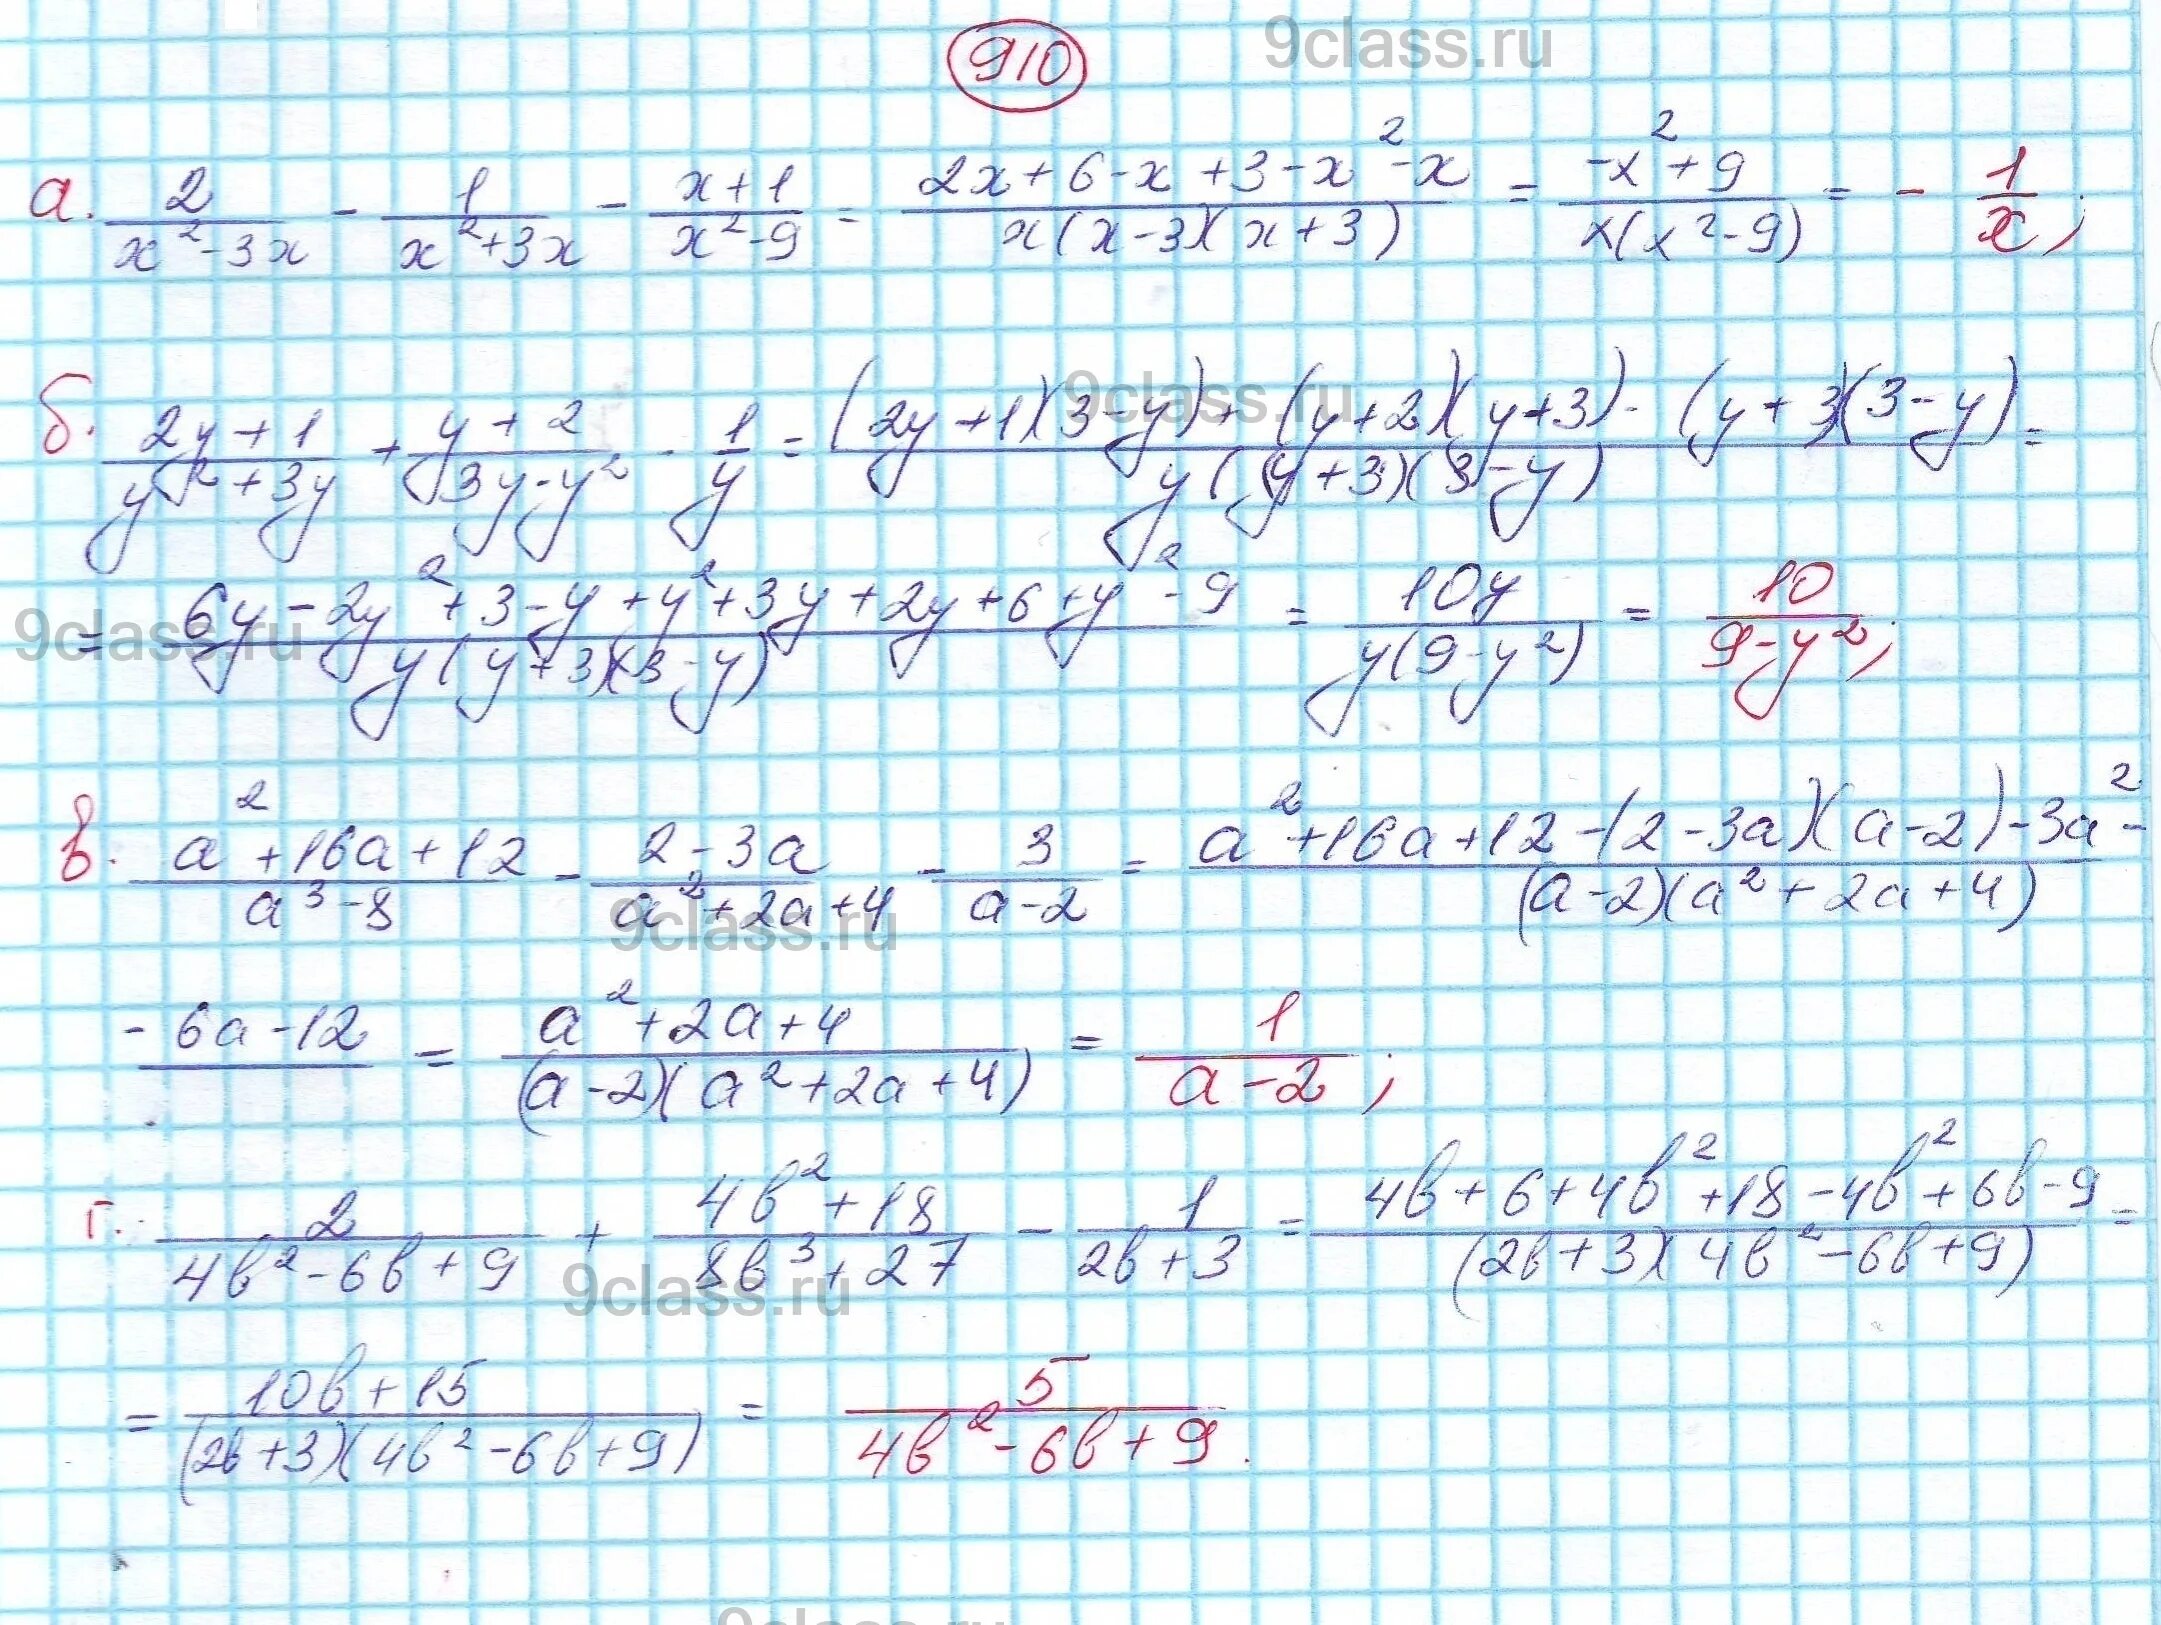 910
9class.ru
а. 2/(x²-3x) - 1/(x²+3x) - (x+1)/(x²-9) = (2x+6-x+3-x²-x)/(x(x-3)(x+3)) = (-x²+9)/(x(x²-9)) = - 1/x;
9class.ru
б. (2y+1)/(y²+3y) + (y+2)/(3y-y²) - 1/y = ((2y+1)(3-y)+(y+2)(y+3)-(y+3)(3-y))/(y(y+3)(3-y)) =
9class.ru
= (6y-2y²+3-y+y²+3y+2y+6+y²-9)/(y(y+3)(3-y)) = 10y/(y(9-y²)) = 10/(9-y²);
в. (a²+16a+12)/(a³-8) - (2-3a)/(a²+2a+4) - 3/(a-2) = (a²+16a+12-(2-3a)(a-2)-3a²-)/((a-2)(a²+2a+4))
9class.ru
-6a-12 = (a²+2a+4)/((a-2)(a²+2a+4)) = 1/(a-2);
г. 2/(4b²-6b+9) + (4b²+18)/(8b³+27) - 1/(2b+3) = (4b+6+4b²+18-4b²+6b-9)/((2b+3)(4b²-6b+9)) =
9class.ru
= (10b+15)/((2b+3)(4b²-6b+9)) = 5/(4b²-6b+9).
9class.ru